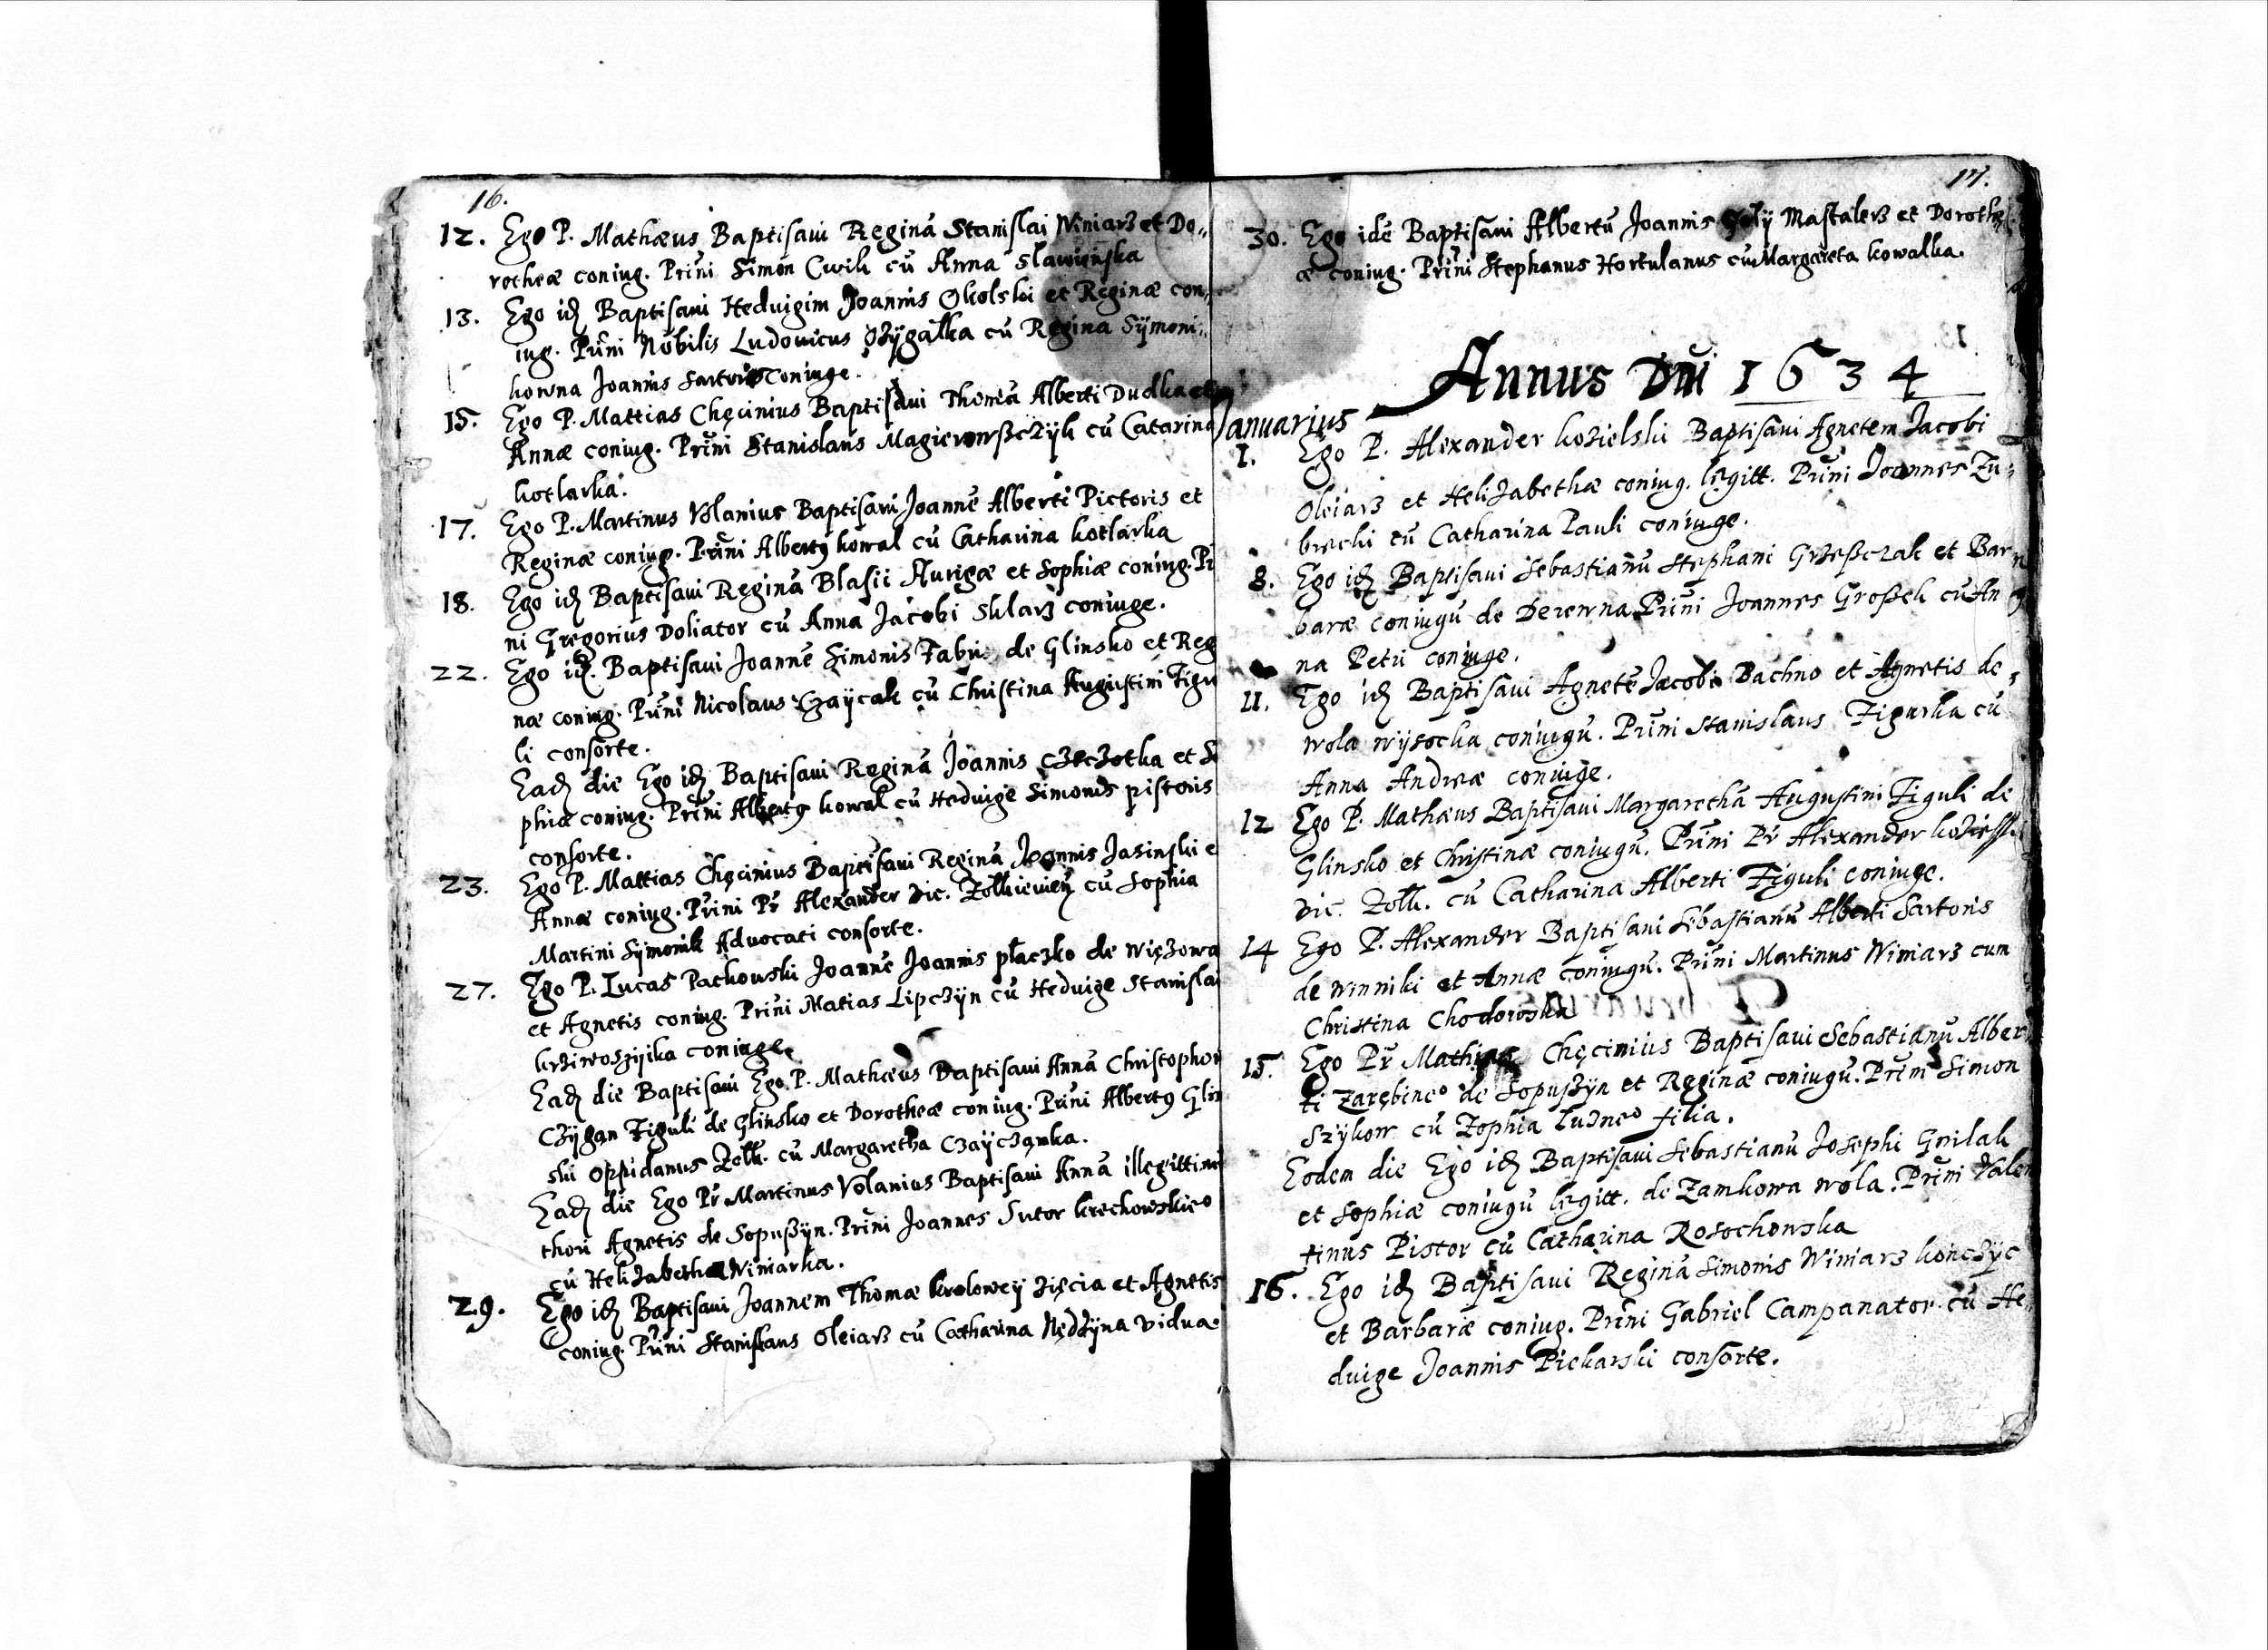 16.
12. Ego P. Mathæus Baptisaui Reginā Stanislai Winiarz et Do„
rotheæ coniug. Prīni Simon Cwik cū Anna Slawinska
13. Ego idē Baptisaui Heduigim Joannis Okolski et Reginæ con„
iug. Prīni Nobilis Ludouicus Ożÿgałka cū Regina Sÿmoni„
kowna Joannis Sartoris Coniuge.
15. Ego P. Mattias Chęcinius Baptisaui Thomā Alberti Dudka et
Annæ coniug. Prīni Stanislaus cū Catarina
kotlarka.
17. Ego P. Martinus Volanius Baptisaui Joannē Alberti Pictoris et
Reginæ coniug. Prīni Albertꝰ kowal cū Catharina kotlarka
18. Ego idē Baptisaui Reginā Blasii Aurigæ et Sophiæ coniug. Pri
ni Gregorius Doliator cū Anna Jacobi Sklarz coniuge.
22. Ego idē. Baptisaui Joannē Simonis Fabri de Glinsko et Regi
næ coniug. Prīni Nicolaus Czaÿcak cū Christina Augustini Figu
li consorte.
Eadē die Ego idē Baptisaui Reginā Joannis Czeczotka et So
phiæ coniug. Prīni Albertꝰ kowal cū Heduige Simonis pistoris
consorte.
23. Ego P. Mattias Chęcinius Baptisaui Reginā Joannis Jasinski e
Annæ coniug. Prīni Pr̄ Alexander Vic. Zolkieuieñ cū Sophia
Martini Sÿmonik Aduocati consorte.
27. Ego P. Lucas Pachowski Joannē Joannis płaczko de Więzowa
et Agnetis coniug. Prīni Matias Lipczÿn cū Heduige Stanislai
coniuge.
Eadē die Baptisaui Ego P. Mathæus Baptisaui Annā Christophori
Czÿgan Figuli de Glinsko et Dorotheæ coniug. Prīni Albertꝰ Glin
ski oppidanus Zolk. cū Margaretha Czaÿcząnka.
Eadē die Ego Pr̄ Martinus Volanius Baptisaui Annā illegittimi
thori Agnetis de Sopuszÿn. Prīni Joannes Sutor krechowskie°
cū Helizabetha Winiarka.
29. Ego idē Baptisaui Joannem Thomæ krolowey zięcia et Agnetis
coniug. Prīni Stanislaus Oleiarz cū Catharina Nędzÿna vidua.
17.
30. Ego idē Baptisaui Albertū Joannis Mastalerz et Dorothe„
æ coniug. Prīni Stephanus Hortulanus cū Margareta kowalka.
Annus Dni 1634
Januarius
1. Ego P. Alexander kozielski Baptisaui Agnetem Jacobi
Oleiarz et Helizabethæ coniug. legitt. Prīni Joannes Zu„
brecki cū Catharina Pauli coniuge.
8. Ego idē Baptisaui Sebastianū Stephani Grzeszczak et Bar
baræ coniugū de Derewna Prīni Joannes Groszek cū An
na Petri coniuge.
11. Ego idē Baptisaui Agnetē Jacobi Bachno et Agnetis de
wola wÿsocka coniugū. Prīni Stanislaus Figurka cū
Anna Andreæ coniuge.
12 Ego P. Mathæus Baptisaui Margarethā Augustini Figuli de
Glinsko et Christinæ coniugū. Prīni Pr̄ Alexander kozielski
Vic. Zolk. cū Catharina Alberti Figuli coniuge.
14 Ego P. Alexander Baptisaui Sebastianū Alberti Sartoris
de winniki et Annæ coniugū. Prīni Martinus Winiarz cum
Christina Chodorowska
15. Ego Pr̄ Mathias Chęcinius Baptisaui Sebastianū Alber
ti Zarębine° de Sopuszÿn et Reginæ coniugū. Prīni Simon
Szÿkow cū Zophia Ludne° filia.
Eodem die Ego idē Baptisaui Sebastianū Josephi Gnilak
et Sophiæ coniugū legitt. de Zamkowa wola. Prīni Valen
tinus Pistor cū Catharina Rosochowska
16. Ego idē Baptisaui Reginā Simonis Winiarz konczÿc
et Barbaræ coniug. Prīni Gabriel Campanator cū He„
duige Joannis Piekarski consorte.